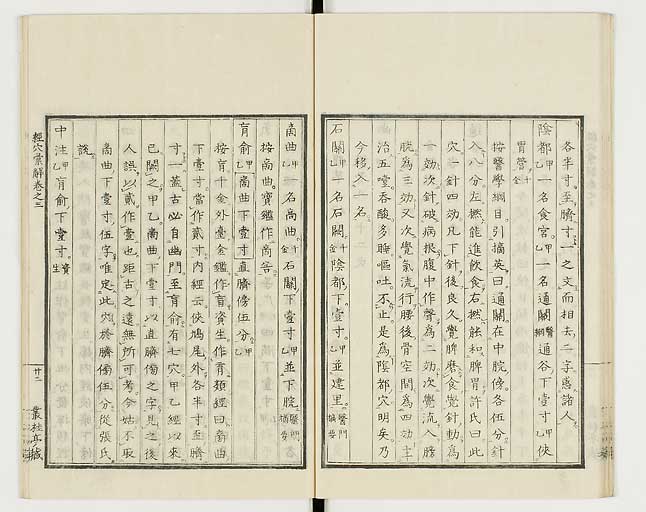 各半寸至臍寸一之文而相去二字惑諸人
陰都甲乙一名食宮甲乙一名通關醫綱通谷下壹寸甲乙俠
胃管千金
按醫學綱目引摘英曰通關在中脘傍各伍分針
入八分左撚能進飲食右撚能和脾胃許氏曰此
穴一針四効凡下針後良久覺脾磨食覺針動為
一効次針破病根腹中作聲為二効次覺流入膀
胱為三効又次覺氣流行腰後骨空間為四効
治五 吞酸多睡嘔吐不止是為陰都穴明矣乃
今移入一名
石關甲乙一名石闕千金陰都下壹寸甲乙並建里醫門
商曲甲乙一名高曲千金石關下壹寸甲乙並下脘醫門
按商曲寶鑑作商舌
肓俞甲乙商曲下壹寸直臍傍伍分甲乙
按肓千金外臺金鑑作育資生作育類經曰商曲
下壹寸當作貳寸內經云俠鳩尾外各半寸至臍
寸一蓋古必自幽門至肓俞有七穴甲乙經以來
已闕之甲乙商曲下壹寸以直臍傍之字見之後
人誤以貳作壹也距古之遠無所可考今姑不取
商曲下壹寸伍字唯定此穴於臍傍伍分從張氏
說
中注甲乙肓俞下壹寸資生
經穴彙解卷之三
廿二
叢桂亭藏